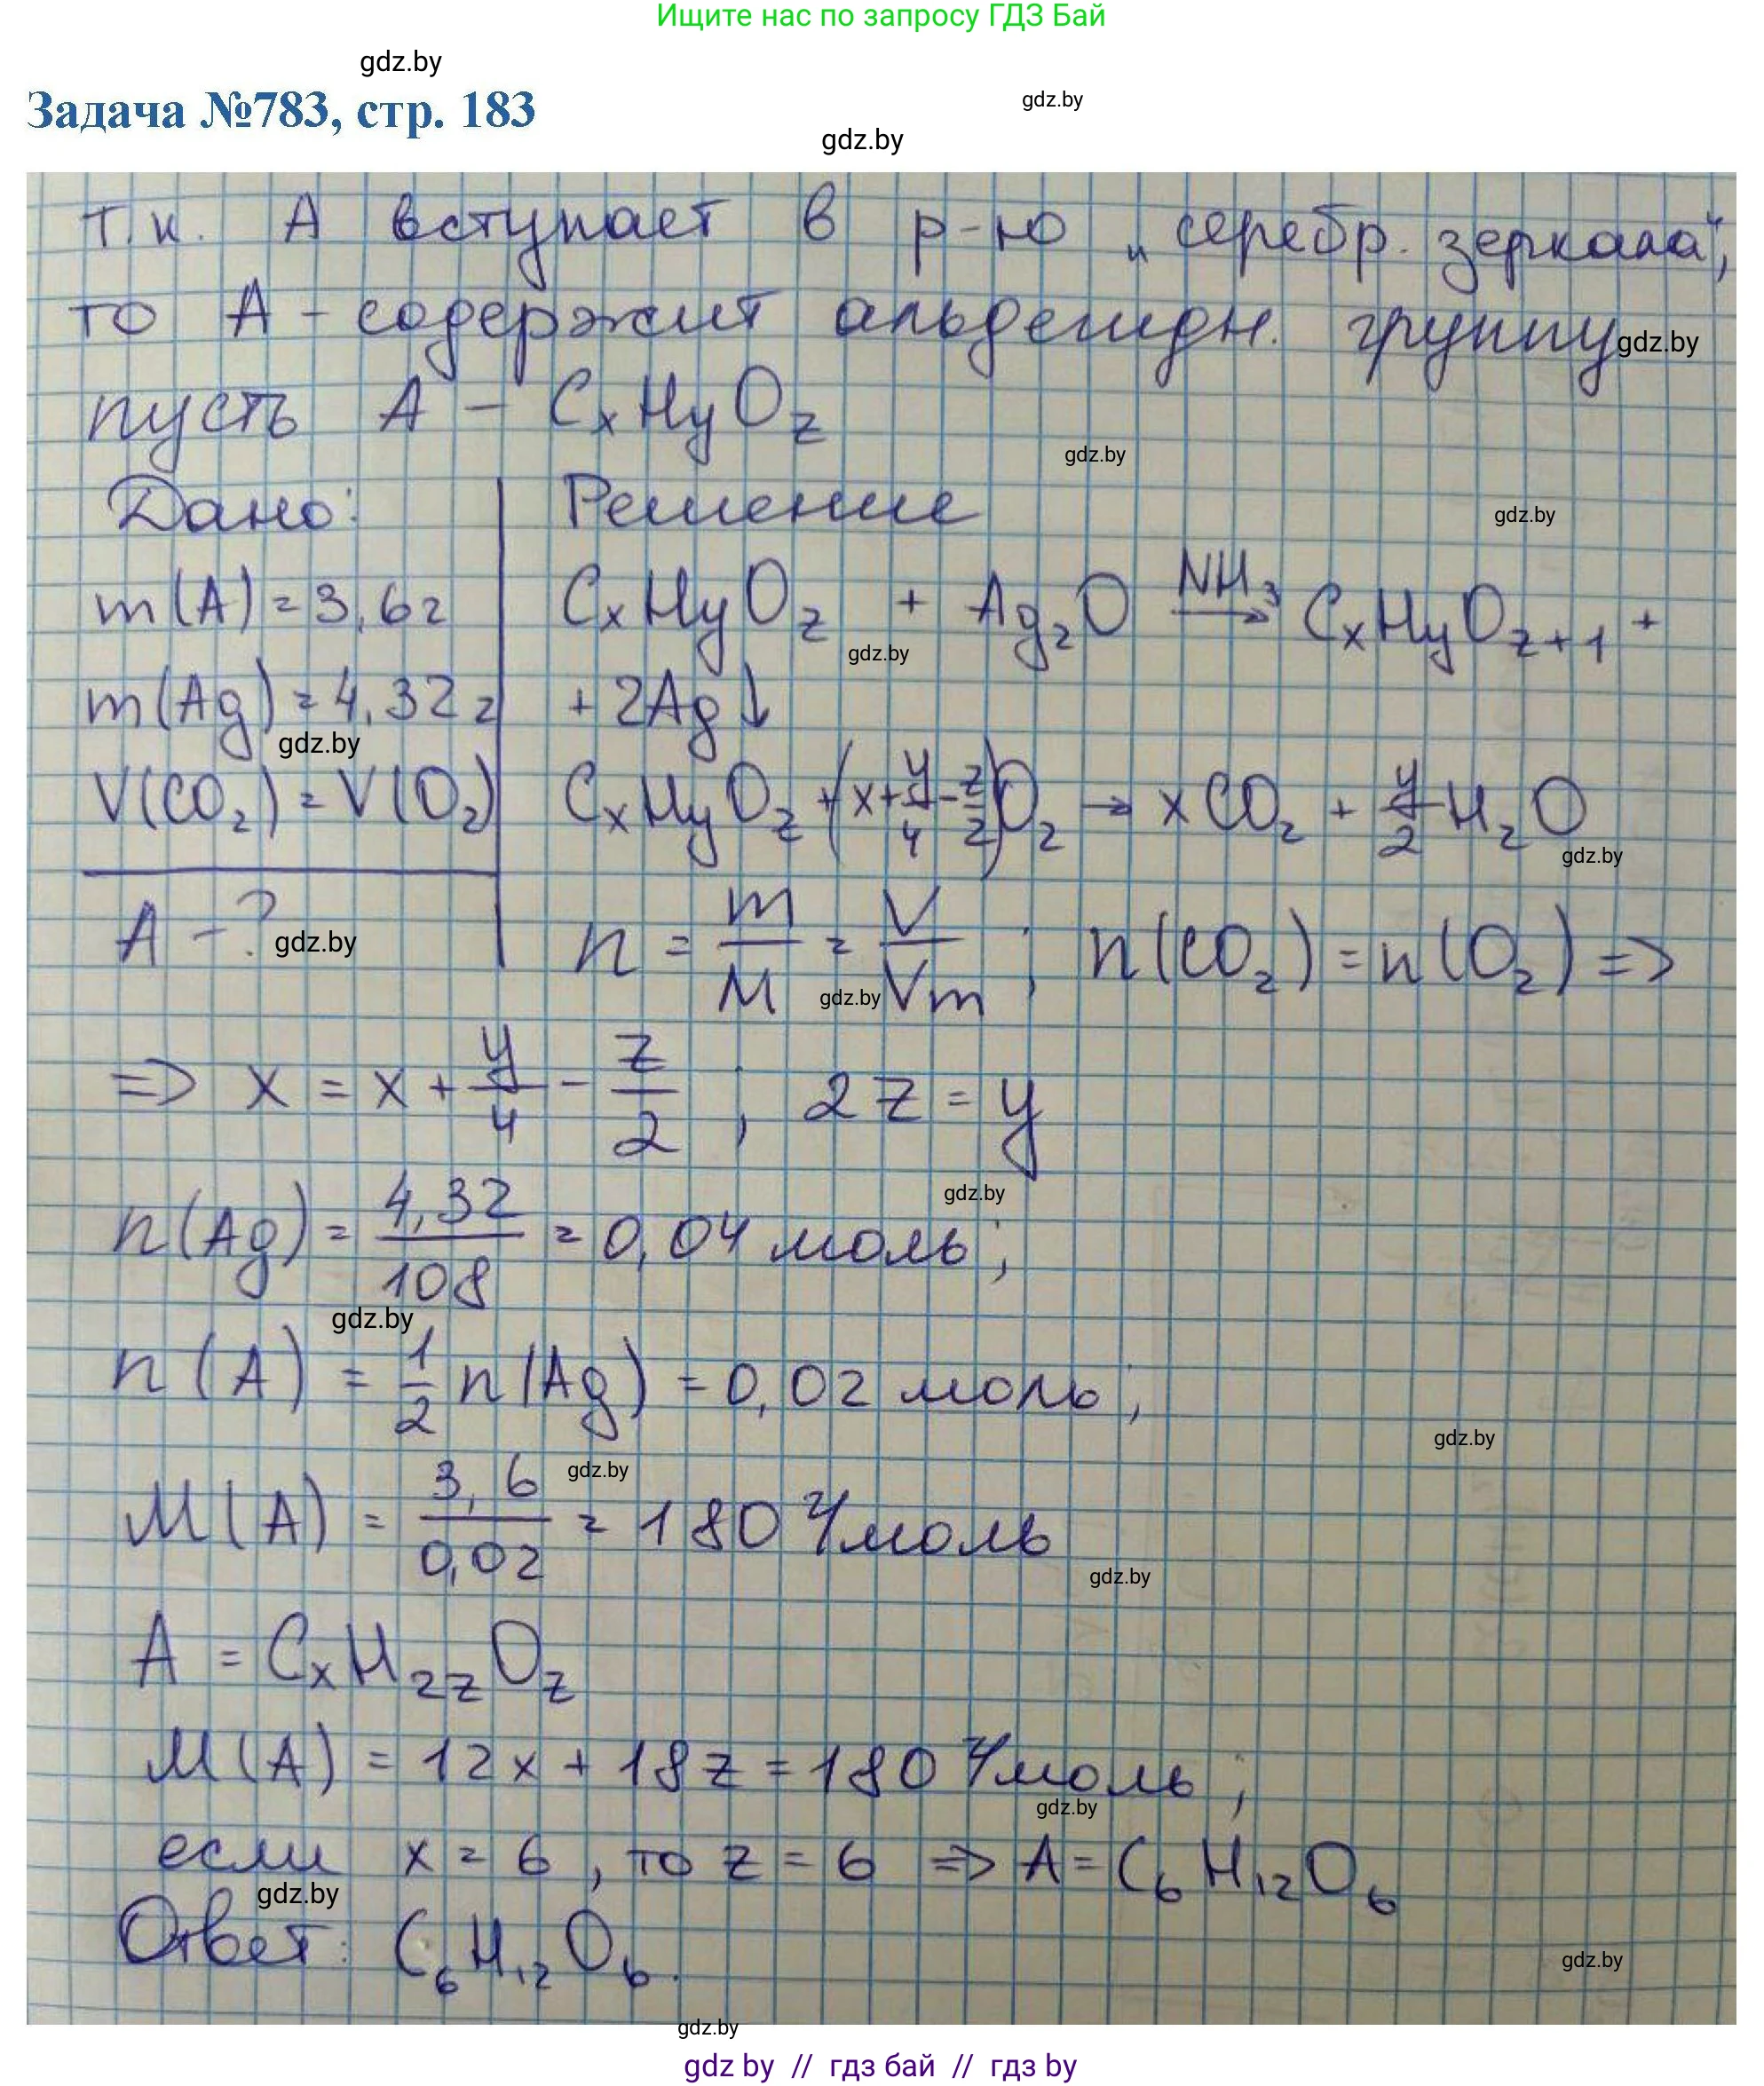 Ищите нас по запросу ГДЗ Бай
gdz.by
Задача №783, стр. 183
gdz.by
gdz.by
т.к. А вступает в р-ю „серебр. зеркала“,
то А - содержит альдегидн. группу
gdz.by
пусть А – CxHyOz
gdz.by
Дано: Решение
gdz.by
m(A) = 3,6г CxHyOz + Ag₂O →(NH₃) CxHyOz+1 +
gdz.by
m(Ag) = 4,32г + 2Ag↓
gdz.by
V(CO₂) = V(O₂) CxHyOz + (x + y/4 - z/2)O₂ → xCO₂ + y/2 H₂O
gdz.by
A - ? n = m/M = V/Vm ; n(CO₂) = n(O₂) =>
gdz.by
gdz.by
=> x = x + y/4 - z/2 ; 2z = y
gdz.by
n(Ag) = 4,32/108 = 0,04 моль;
gdz.by
n(A) = 1/2 n(Ag) = 0,02 моль;
gdz.by
gdz.by
M(A) = 3,6/0,02 = 180 г/моль
gdz.by
A = CxH2zOz
M(A) = 12x + 18z = 180 г/моль;
gdz.by
если x = 6, то z = 6 => A = C₆H₁₂O₆
gdz.by
Ответ: C₆H₁₂O₆.
gdz.by
gdz.by
gdz by // гдз бай // гдз by